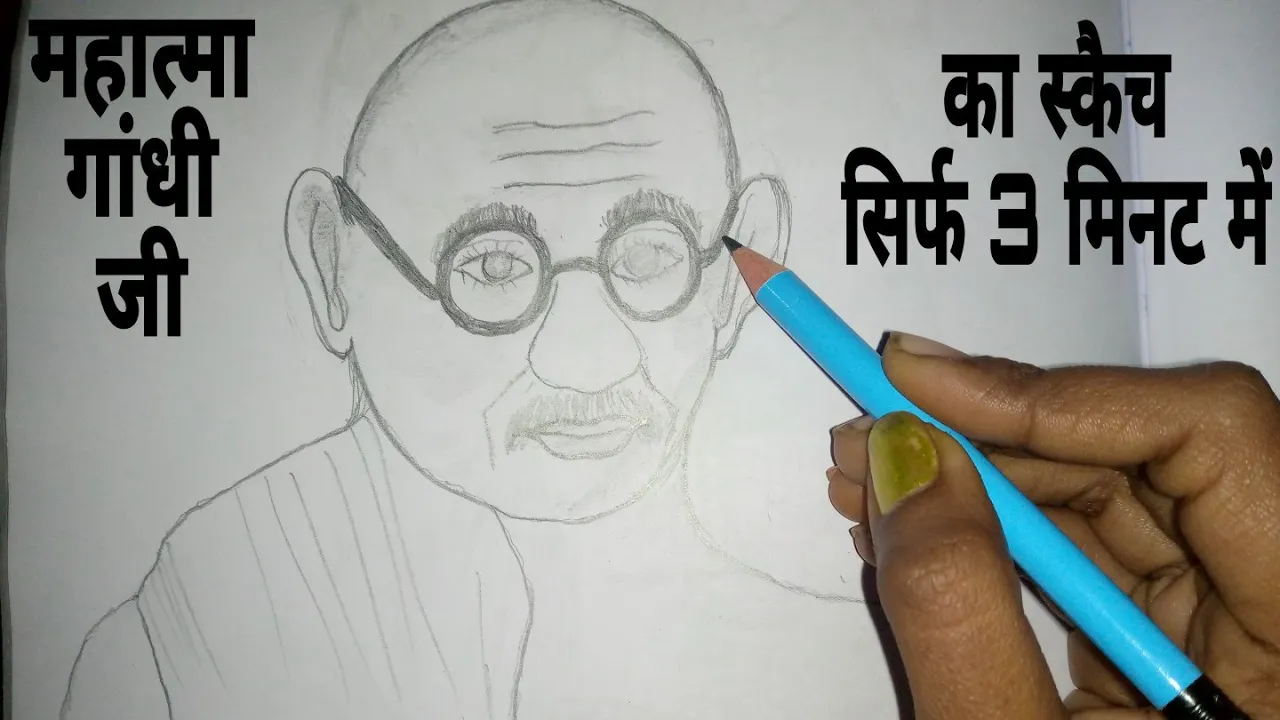 महात्मा
गांधी
जी
का स्कैच
सिर्फ 3 मिनट में